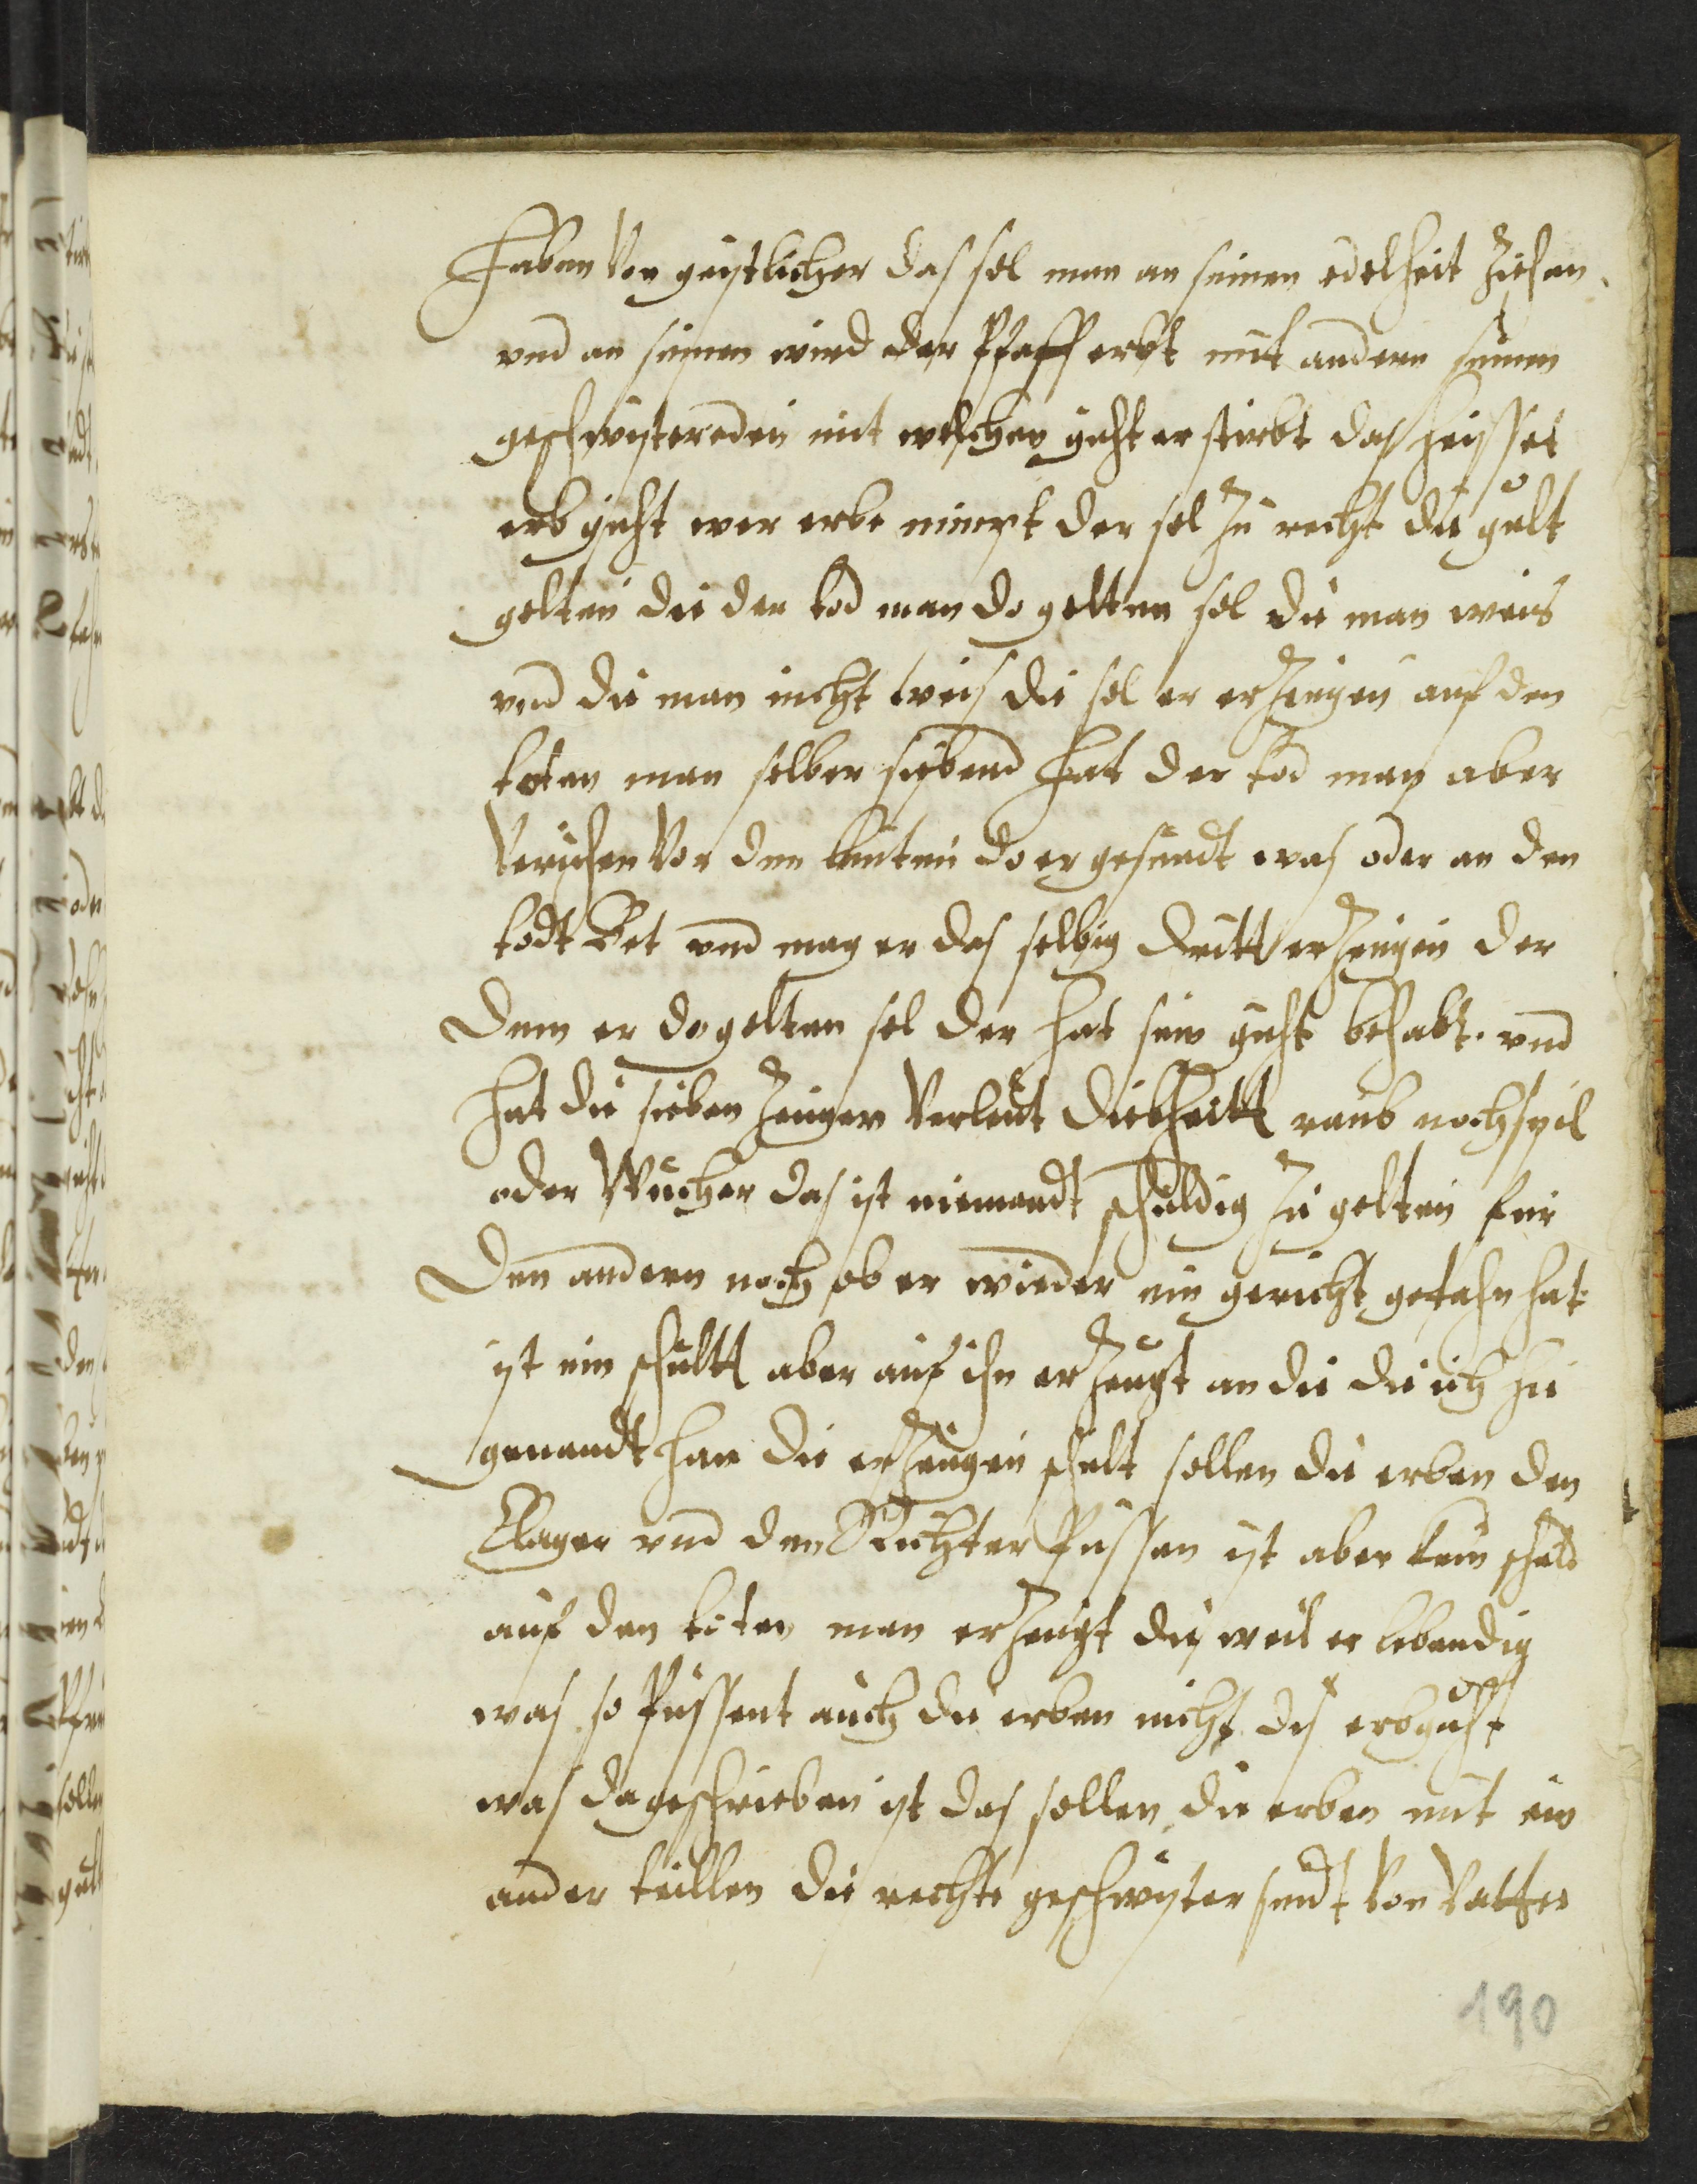 Haben von geistlicher das sol man an seinen edelheit ziehen
vnd an seinen wird der Pfaff erbt mit andern seinen
geschwistereden mit welchen guht er stirbt das heisset
erb guht wer erbe nimpt der sol zu recht die gult
gelten die der tod man do gelten sol die man weis
vnd die man nicht weis die sol er erzeugen auf den
toten man selber siebend Hat der tod man aber
veriehen vor den leuten do er gesundt was oder an den
todt Bet vnd mag er das selbig dritt erzeugen der
Dem er do gelten sol der hat sein guht behabt. vnd
Hat die sieben zeugen verleut diebheitt raub noch spil
oder Wucher das ist niemandt schuldig zu gelten fur
Den andern noch ob er wieder ein gericht gethan hat
ist ein schultt aber auf ihn erzeugt an die die ich hie
genandt han die erzeugen schult sollen die erben den
Clager vnd den Richter Pussen ist aber kein schuld
auf den toten man erzeugt die weil er lebendig
was so Pussent auch die erben nicht dis erbguht
was da geschrieben ist das sollen die erben mit ein
ander teillen die rechte geschwister sindt von Vatter
190